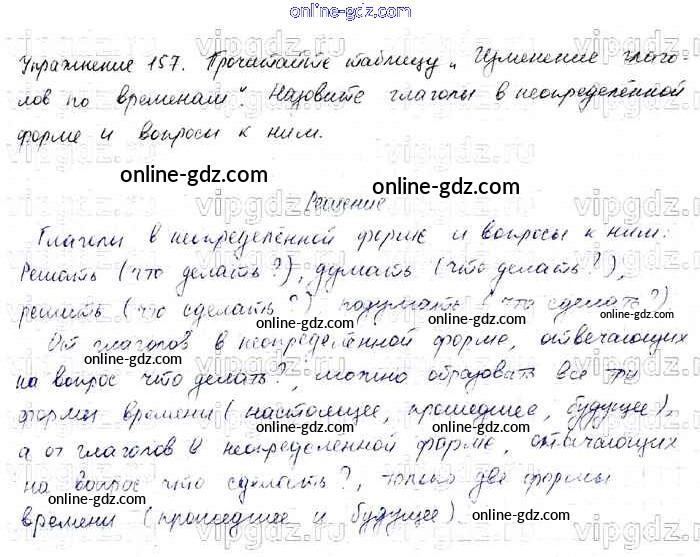 online-gdz.com
Упражнение 157. Прочитайте таблицу „Изменение глаго-
лов по временам“. Назовите глаголы в неопределённой
форме и вопросы к ним.
online-gdz.com online-gdz.com
Решение
Глаголы в неопределённой форме и вопросы к ним:
Решать (что делать?), думать (что делать?),
решить (что сделать?) подумать (что сделать?)
От глаголов в неопределённой форме, отвечающих
на вопрос что делать?, можно образовать все три
формы времени (настоящее, прошедшее, будущее),
а от глаголов в неопределённой форме, отвечающих
на вопрос что сделать?, только две формы
времени (прошедшее и будущее).